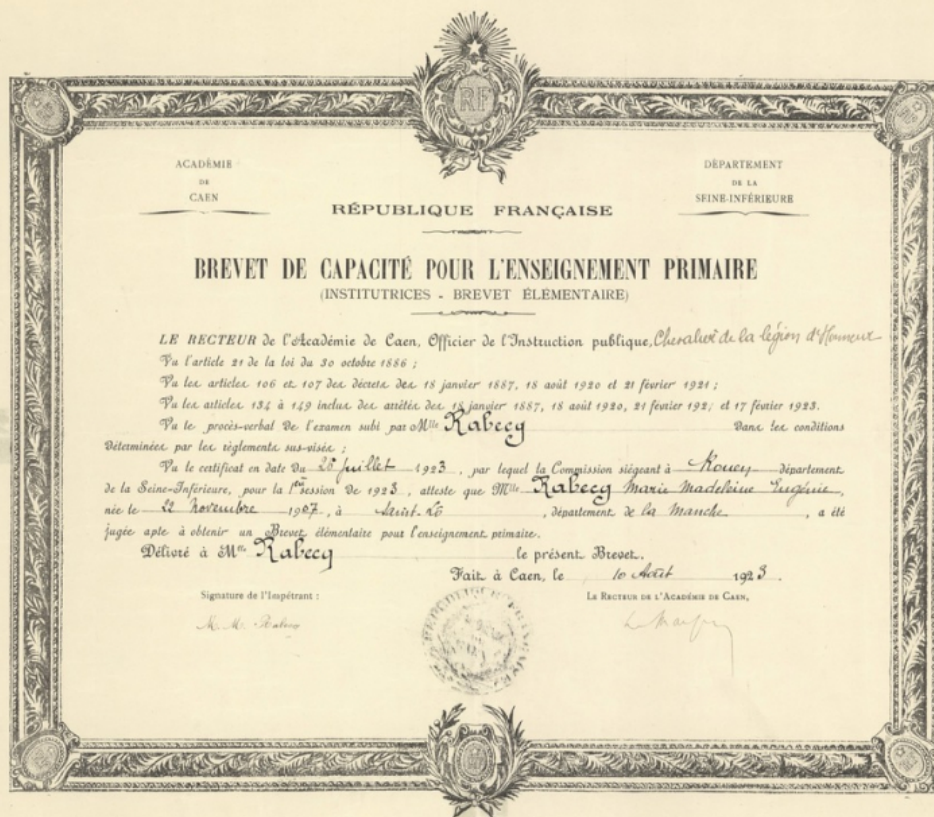 RF
ACADÉMIE
DE
CAEN
DÉPARTEMENT
DE LA
SEINE-INFÉRIEURE
RÉPUBLIQUE FRANÇAISE
BREVET DE CAPACITÉ POUR L'ENSEIGNEMENT PRIMAIRE
(INSTITUTRICES - BREVET ÉLÉMENTAIRE)
LE RECTEUR de l'Académie de Caen, Officier de l'Instruction publique, Chevalier de la légion d'Honneur
Vu l'article 21 de la loi du 30 octobre 1886 ;
Vu les articles 106 et 107 des décrets des 18 janvier 1887, 18 août 1920 et 21 février 1921 ;
Vu les articles 134 à 149 inclus des arrêtés des 18 janvier 1887, 18 août 1920, 21 février 192; et 17 février 1923.
Vu le procès-verbal de l'examen subi par Mlle Rabecq dans les conditions
déterminées par les règlements sus-visés ;
Vu le certificat en date du juillet 1923, par lequel la Commission siégeant à Rouen département
de la Seine-Inférieure, pour la 1ère session de 1923, atteste que Mlle Rabecq Marie Madeleine Eugénie,
née le 22 Novembre 1907, à Saint-Lô, département de la Manche, a été
jugée apte à obtenir un Brevet élémentaire pour l'enseignement primaire.
Délivré à Mlle Rabecq le présent Brevet.
Fait à Caen, le 10 Août 1923.
Signature de l'Impétrant :
LE RECTEUR DE L'ACADÉMIE DE CAEN,
M. M. Rabecq